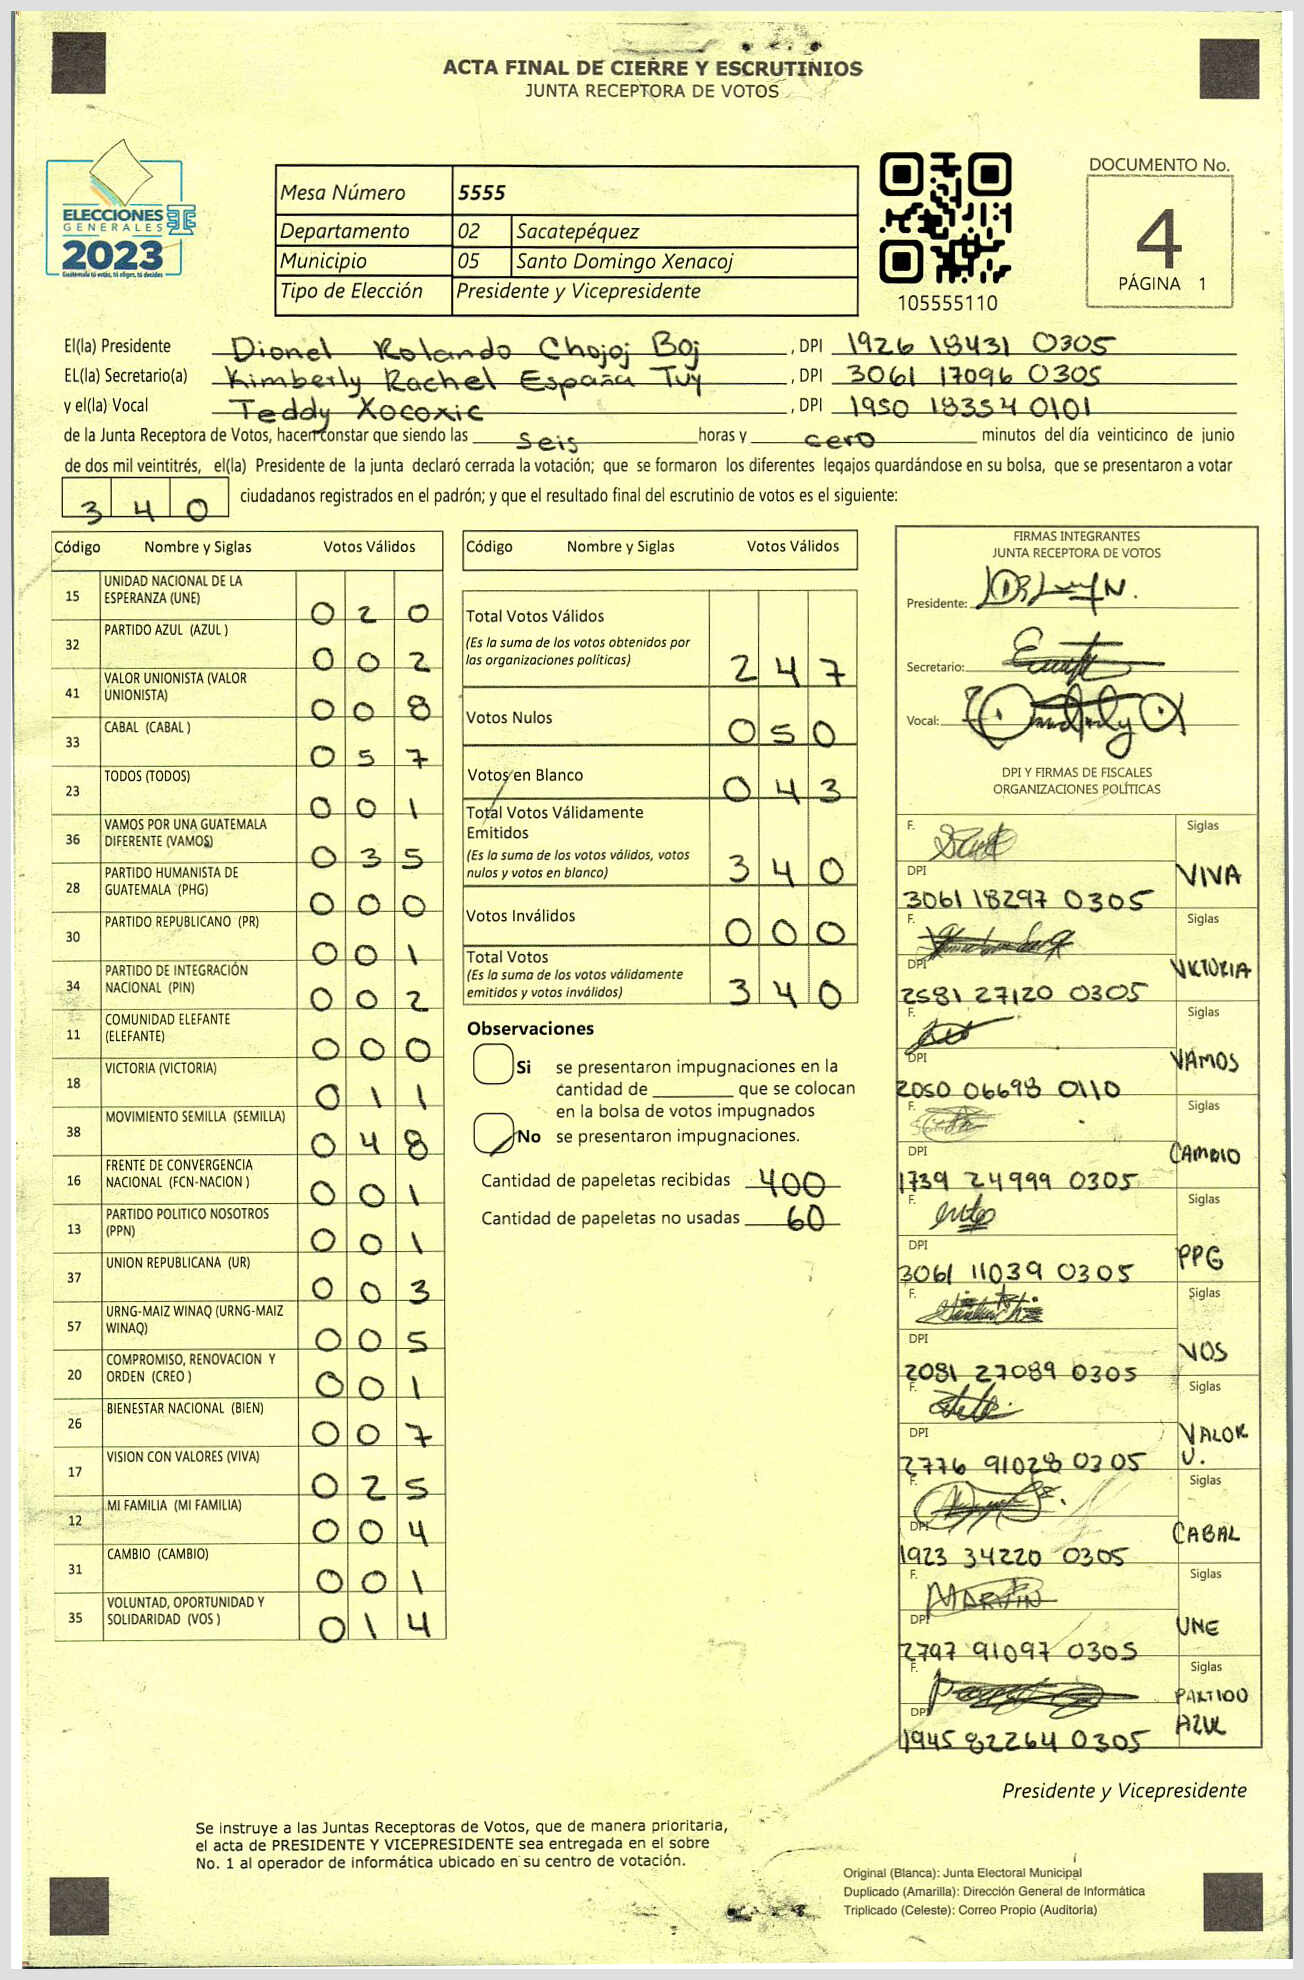 ACTA FINAL DE CIERRE Y ESCRUTINIOS
JUNTA RECEPTORA DE VOTOS
ELECCIONES
GENERALES
2023
Guatemala tú votas, tú eliges, tú decides
Mesa Número 5555
Departamento 02 Sacatepéquez
Municipio 05 Santo Domingo Xenacoj
Tipo de Elección Presidente y Vicepresidente
105555110
DOCUMENTO No.
4
PÁGINA 1
El(la) Presidente Dionel Rolando Chojoj Boj , DPI 1926 18431 0305
EL(la) Secretario(a) Kimberly Rachel España Tuy , DPI 3061 17096 0305
y el(la) Vocal Teddy Xocoxic , DPI 1950 18354 0101
de la Junta Receptora de Votos, hacen constar que siendo las seis horas y cero minutos del día veinticinco de junio
de dos mil veintitrés, el(la) Presidente de la junta declaró cerrada la votación; que se formaron los diferentes legajos quardándose en su bolsa, que se presentaron a votar
340 ciudadanos registrados en el padrón; y que el resultado final del escrutinio de votos es el siguiente:
Código Nombre y Siglas Votos Válidos
15 UNIDAD NACIONAL DE LA
ESPERANZA (UNE) 020
32 PARTIDO AZUL (AZUL ) 002
41 VALOR UNIONISTA (VALOR
UNIONISTA) 008
33 CABAL (CABAL ) 057
23 TODOS (TODOS) 001
36 VAMOS POR UNA GUATEMALA
DIFERENTE (VAMOS) 035
28 PARTIDO HUMANISTA DE
GUATEMALA (PHG) 000
30 PARTIDO REPUBLICANO (PR) 001
34 PARTIDO DE INTEGRACIÓN
NACIONAL (PIN) 002
11 COMUNIDAD ELEFANTE
(ELEFANTE) 000
18 VICTORIA (VICTORIA) 011
38 MOVIMIENTO SEMILLA (SEMILLA) 048
16 FRENTE DE CONVERGENCIA
NACIONAL (FCN-NACION ) 001
13 PARTIDO POLITICO NOSOTROS
(PPN) 001
37 UNION REPUBLICANA (UR) 003
57 URNG-MAIZ WINAQ (URNG-MAIZ
WINAQ) 005
20 COMPROMISO, RENOVACION Y
ORDEN (CREO ) 001
26 BIENESTAR NACIONAL (BIEN) 007
17 VISION CON VALORES (VIVA) 025
12 MI FAMILIA (MI FAMILIA) 004
31 CAMBIO (CAMBIO) 001
35 VOLUNTAD, OPORTUNIDAD Y
SOLIDARIDAD (VOS ) 014
Código Nombre y Siglas Votos Válidos
Total Votos Válidos
(Es la suma de los votos obtenidos por
las organizaciones políticas) 247
Votos Nulos 050
Votos en Blanco 043
Total Votos Válidamente
Emitidos
(Es la suma de los votos válidos, votos
nulos y votos en blanco) 340
Votos Inválidos 000
Total Votos
(Es la suma de los votos válidamente
emitidos y votos inválidos) 340
Observaciones
Si se presentaron impugnaciones en la
cantidad de ________ que se colocan
en la bolsa de votos impugnados
No se presentaron impugnaciones.
Cantidad de papeletas recibidas 400
Cantidad de papeletas no usadas 60
FIRMAS INTEGRANTES
JUNTA RECEPTORA DE VOTOS
Presidente:
Secretario:
Vocal:
DPI Y FIRMAS DE FISCALES
ORGANIZACIONES POLÍTICAS
F. Siglas
DPI VIVA
3061 18297 0305
F. Siglas
DPI VICTORIA
2581 27120 0305
F. Siglas
DPI VAMOS
2050 06698 0110
F. Siglas
DPI CAMBIO
1739 24999 0305
F. Siglas
DPI PPG
3061 11039 0305
F. Siglas
DPI VOS
2081 27089 0305
F. Siglas
DPI VALOR
U.
2776 91028 0305
F. Siglas
DPI CABAL
1923 34220 0305
F. MARVIN Siglas
DPI UNE
2797 91097 0305
F. Siglas
DPI PARTIDO
AZUL
1945 82264 0305
Presidente y Vicepresidente
Se instruye a las Juntas Receptoras de Votos, que de manera prioritaria,
el acta de PRESIDENTE Y VICEPRESIDENTE sea entregada en el sobre
No. 1 al operador de informática ubicado en su centro de votación.
Original (Blanca): Junta Electoral Municipal
Duplicado (Amarilla): Dirección General de Informática
Triplicado (Celeste): Correo Propio (Auditoría)